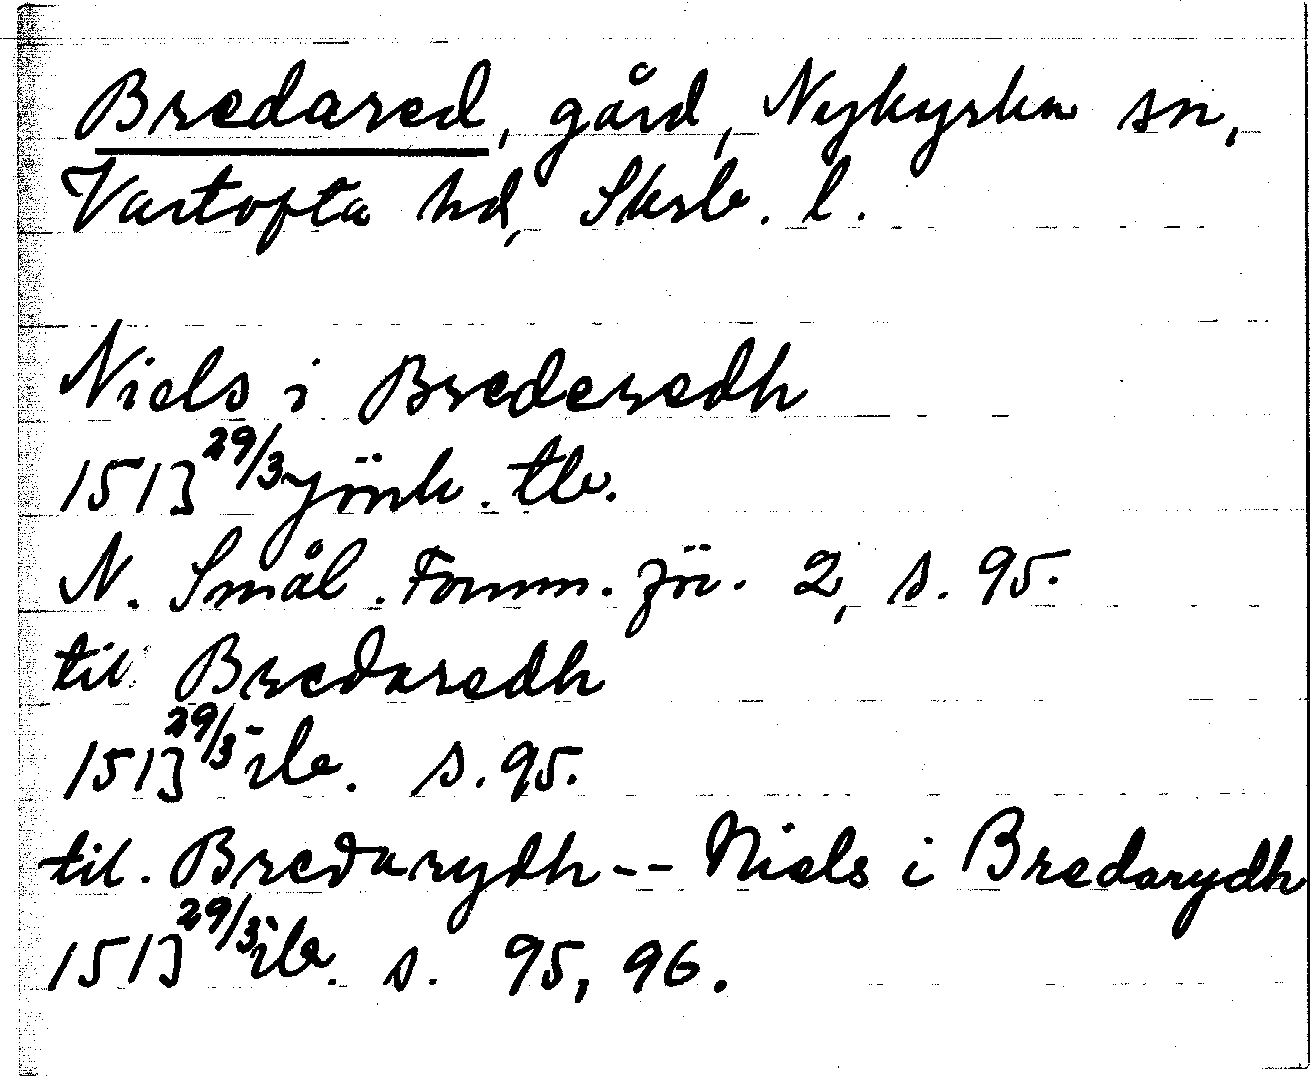 Bredared, gård, Nykyrka sn,
Vartofta hd, Skrb. l.
Niels i Brederedh
1513 29/3 Jönk. tb.
N. Smål. Fornm.för. 2, s. 95.
til Bredaredh
1513 29/3 ib. s. 95.
til. Bredarydh -- Niels i Bredarydh
1513 29/3 ib. s. 95, 96.